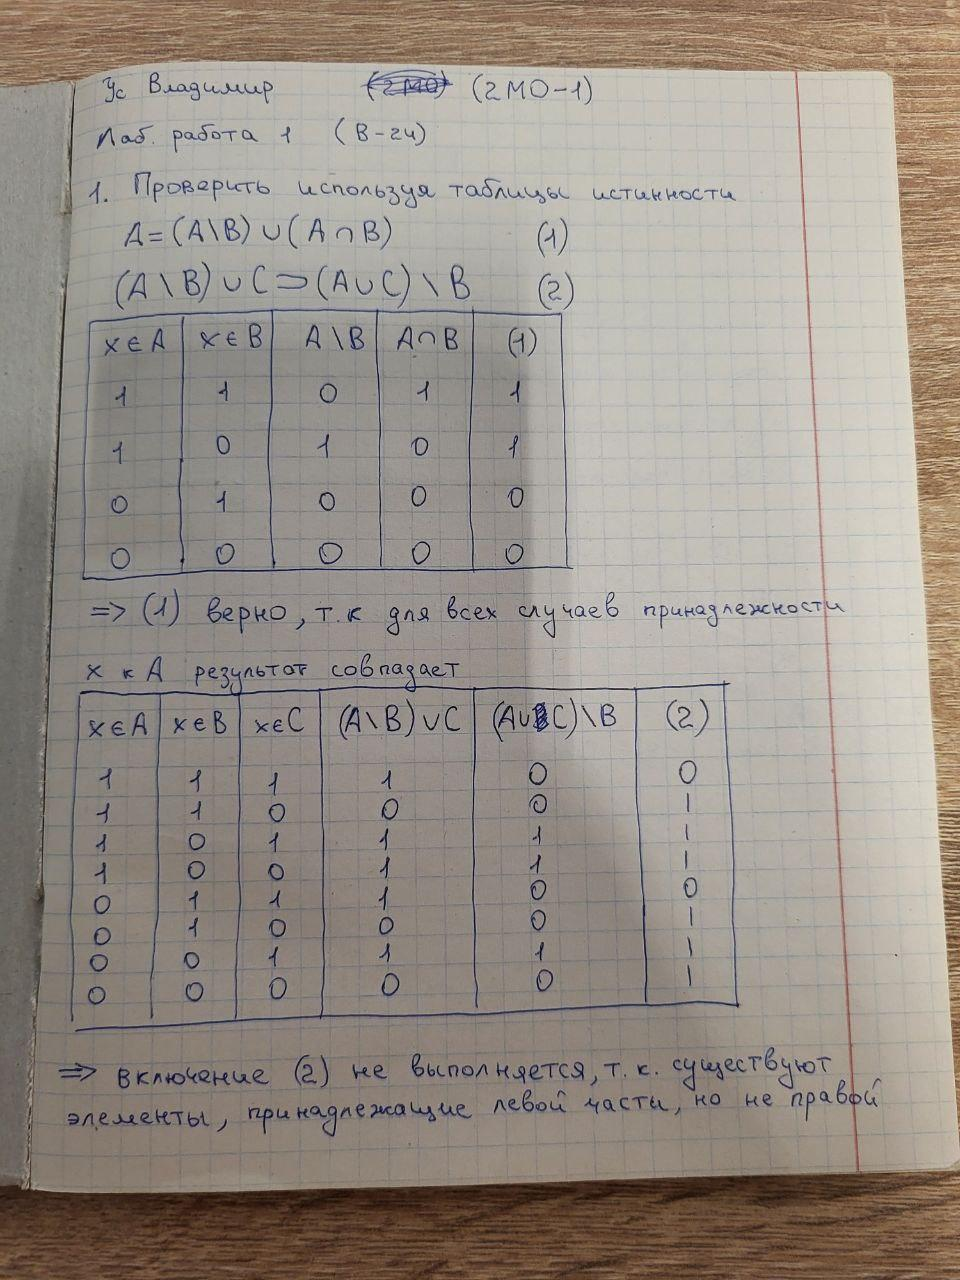 Ус Владимир (2МО) (2МО-1)
Лаб. работа 1 (В-24)
1. Проверить используя таблицы истинности
A = (A\B) ∪ (A ∩ B) (1)
(A \ B) ∪ C ⊃ (A ∪ C) \ B (2)
x ∈ A x ∈ B A \ B A ∩ B (1)
1 1 0 1 1
1 0 1 0 1
0 1 0 0 0
0 0 0 0 0
=> (1) верно, т.к для всех случаев принадлежности
x к A результат совпадает
x ∈ A x ∈ B x ∈ C (A \ B) ∪ C (A ∪ C) \ B (2)
1 1 1 1 0 0
1 1 0 0 0 1
1 0 1 1 1 1
1 0 0 1 1 1
0 1 1 1 0 0
0 1 0 0 0 1
0 0 1 1 1 1
0 0 0 0 0 1
=> включение (2) не выполняется, т.к. существуют
элементы, принадлежащие левой части, но не правой